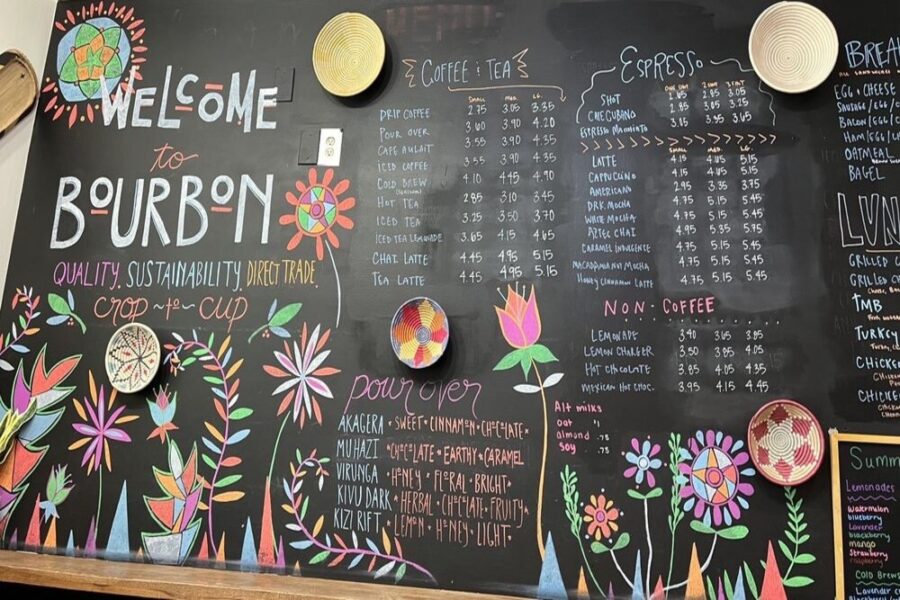 WELCOME
to
BOURBON
QUALITY. SUSTAINABILITY. DIRECT TRADE.
crop ~to~ cup
COFFEE & TEA
SMALL MED LG.
DRIP COFFEE 2.75 3.05 3.35
POUR OVER 3.60 3.90 4.20
CAFE AULAIT 3.55 3.90 4.35
ICED COFFEE 3.55 3.90 4.35
COLD BREW 4.10 4.45 4.90
HOT TEA 2.85 3.10 3.45
ICED TEA 3.25 3.50 3.70
ICED TEA LEMONADE 3.65 4.15 4.65
CHAI LATTE 4.45 4.95 5.15
TEA LATTE 4.45 4.95 5.15
pour over
AKAGERA • SWEET • CINNAMON • CHOCOLATE •
MUHAZI • CHOCOLATE • EARTHY • CARAMEL
VIRUNGA • HONEY • FLORAL • BRIGHT •
KIVU DARK • HERBAL • CHOCOLATE • FRUITY •
KIZI RIFT • LEMON • HONEY • LIGHT •
ESPRESSO
SHOT 2.85 3.05
CHE CUBANO 2.85 3.05 3.25
ESPRESSO MACHIATO 3.15 3.35 3.65
SMALL MED LG.
LATTE 4.15 4.85 5.15
CAPPUCCINO 4.15 4.85 5.15
AMERICANO 2.95 3.35 3.75
DRK. MOCHA 4.75 5.15 5.45
WHITE MOCHA 4.75 5.15 5.45
AZTEC CHAI 4.95 5.35 5.75
CARAMEL INDULGENCE 4.75 5.15 5.45
MACADAMIA NUT MOCHA 4.75 5.15 5.45
HONEY CINNAMON LATTE
NON-COFFEE
LEMONADE 3.40 3.65 3.85
LEMON CHARGER 3.50 3.85 4.05
HOT CHOCOLATE 3.85 4.05 4.35
MEXICAN HOT CHOC. 3.95 4.15 4.45
Alt milks
oat
almond .75
soy .75
BREA
EGG + CHEESE
SAUSAGE/EGG/C
BACON/EGG/C
HAM/EGG/C
OATMEAL
BAGEL
LUN
GRILLED C
GRILLED C
TMB
TURKEY
CHICKEN
CHICKEN
Summ
Lemonades
watermelon
blueberry
lavender
blackberry
mango
strawberry
raspberry
COLD BREWS
LAVENDER C